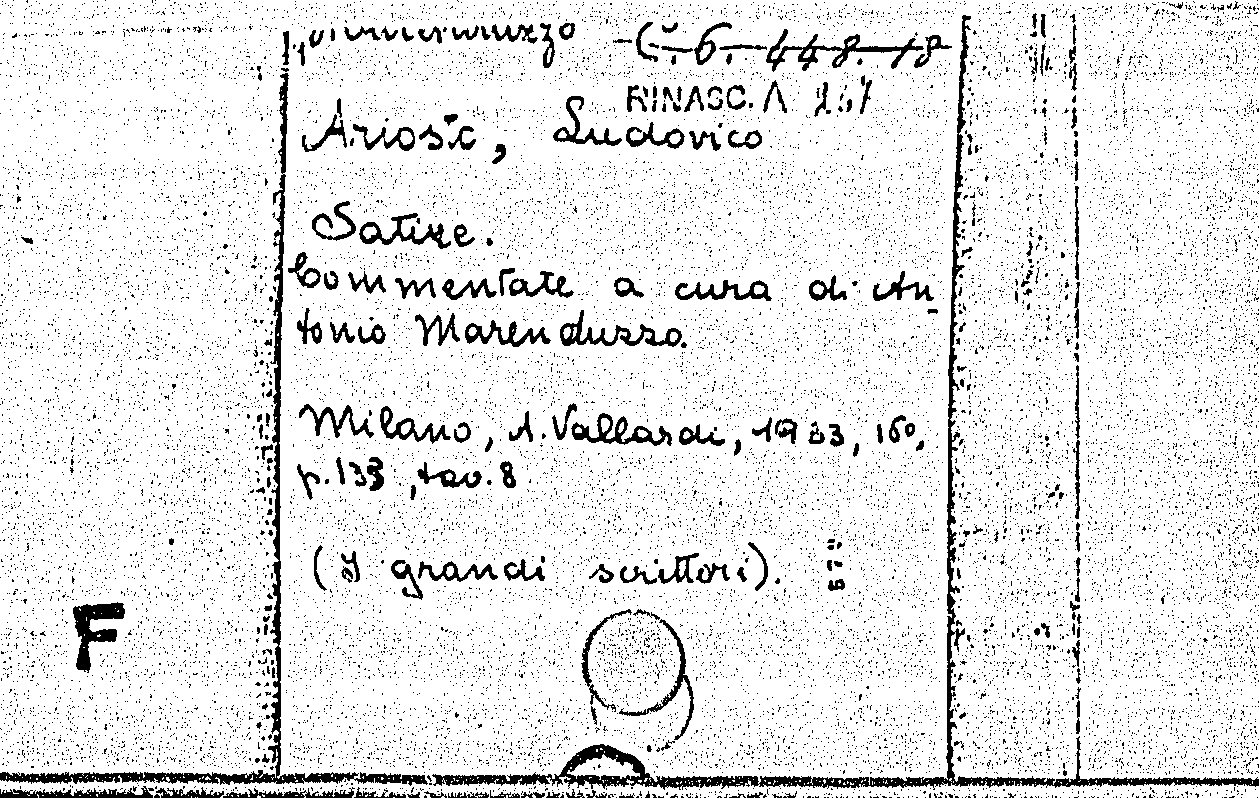 C. 6. 448. 18
RINASC. A 267
Ariosto, Ludovico
Satire.
Commentate a cura di An
tonio Marenduzzo.
Milano, A. Vallardi, 1933, 16°,
p. 133, tav. 8
(I grandi scrittori).
F